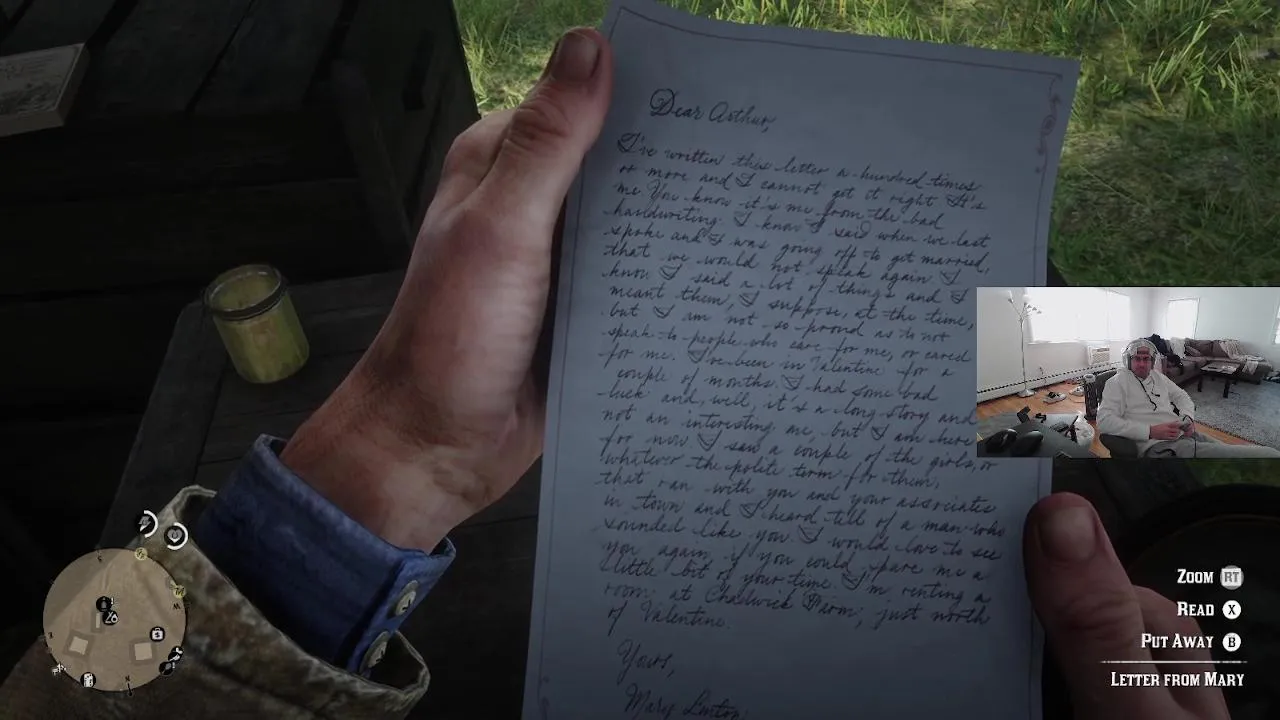 Dear Arthur,
I've written this letter a hundred times
or more and I cannot get it right It's
me You know it's me from the bad
handwriting. I know I said when we last
spoke and I was going off to get married,
that we would not speak again I
know I said a lot of things and I
meant them, I suppose, at the time,
but I am not so proud as to not
speak to people who care for me, or cared
for me. I've been in Valentine for a
couple of months. I had some bad
luck and, well, it's a long story and
not an interesting one, but I am here
for now I saw a couple of the girls, or
whatever the polite term for them,
that ran with you and your associates
in town and I heard tell of a man who
sounded like you I would love to see
you again if you could spare me a
little bit of your time I'm renting a
room at Chadwick Farm, just north
of Valentine.
Yours,
Mary Linton
ZOOM RT
READ X
PUT AWAY B
LETTER FROM MARY